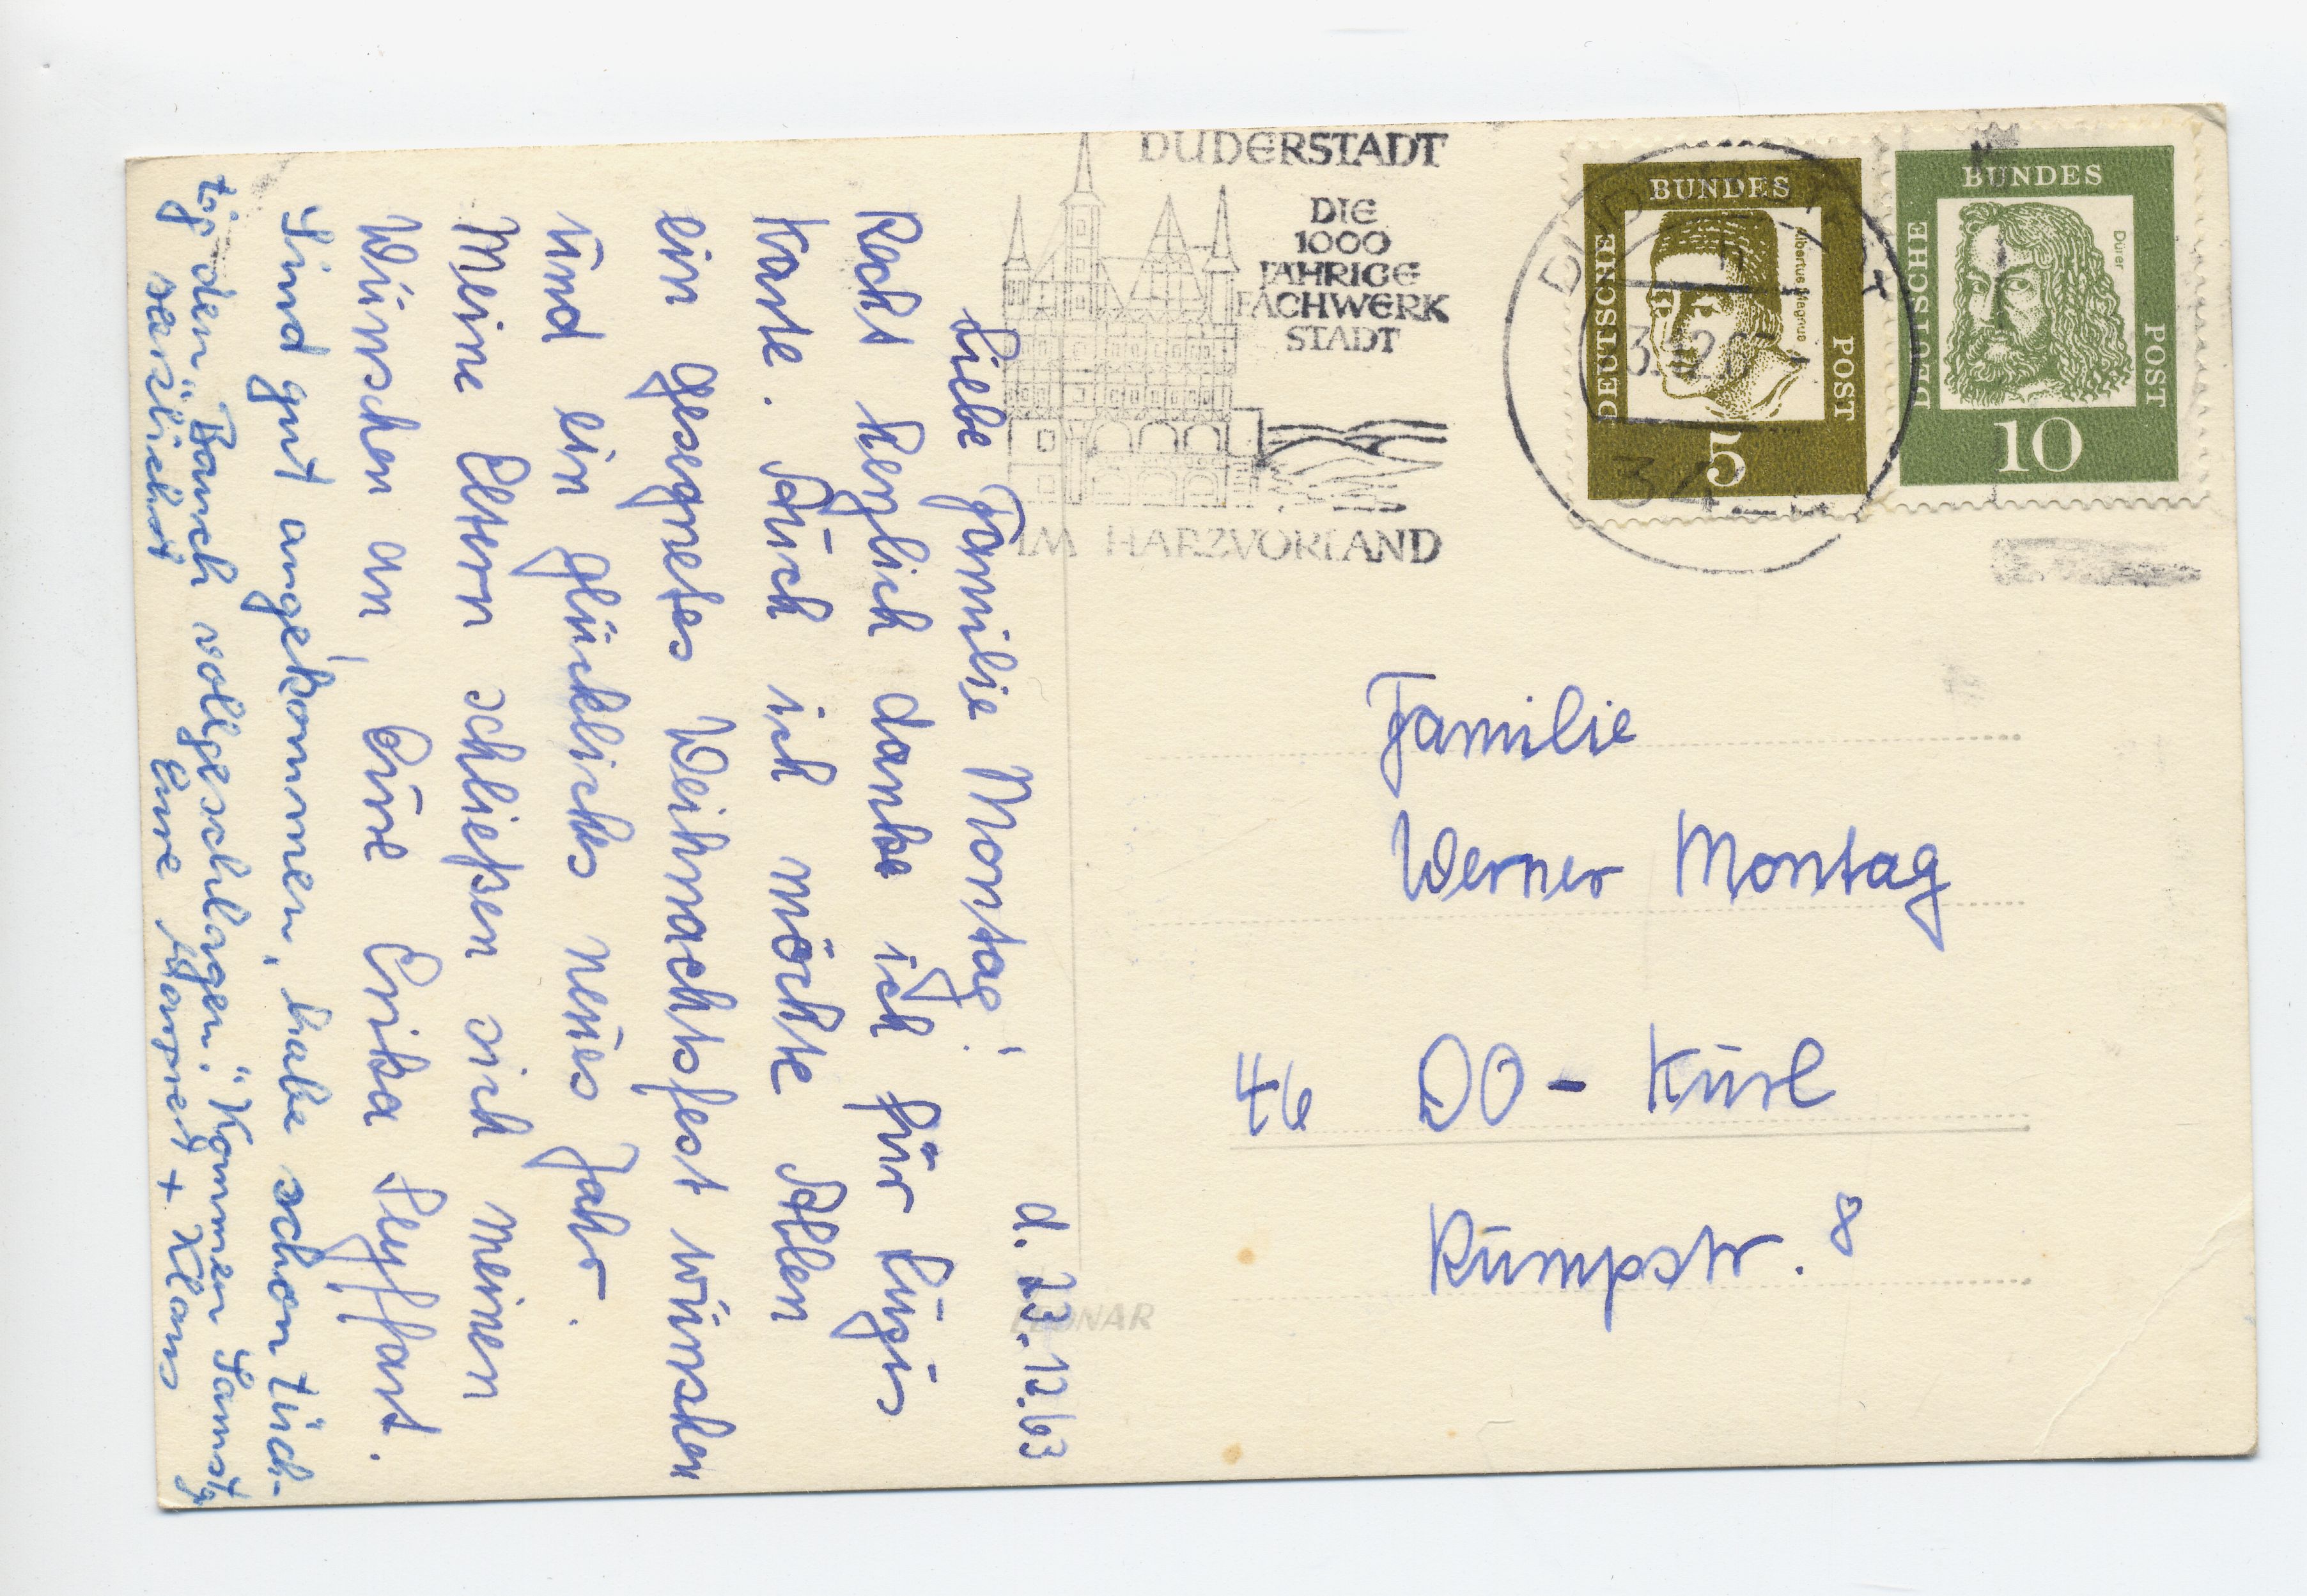 d. 23.12.63
Liebe Familie Montag!
Recht herzlich danke ich für Eure
Karte. Auch ich möchte Allen
ein gesegnetes Weihnachtsfest wünschen
und ein glückliches neues Jahr.
Meine Eltern schließen sich meinen
Wünschen an, Eure Erika Seyffart.
Sind gut angekommen, habe schon tüch-
tig den "Bauch vollgeschlagen." Kommen Samstg
herzlichst Eure + Klaus
DUDERSTADT
DIE
1000
JÄHRIGE
FACHWERK
STADT
IM HARZVORLAND
DEUTSCHE BUNDES POST
Albertus Magnus
5
DEUTSCHE BUNDES POST
Dürer
10
34
Familie
Werner Montag
46 DO - Kurl
Kümpstr. 8
LEONAR